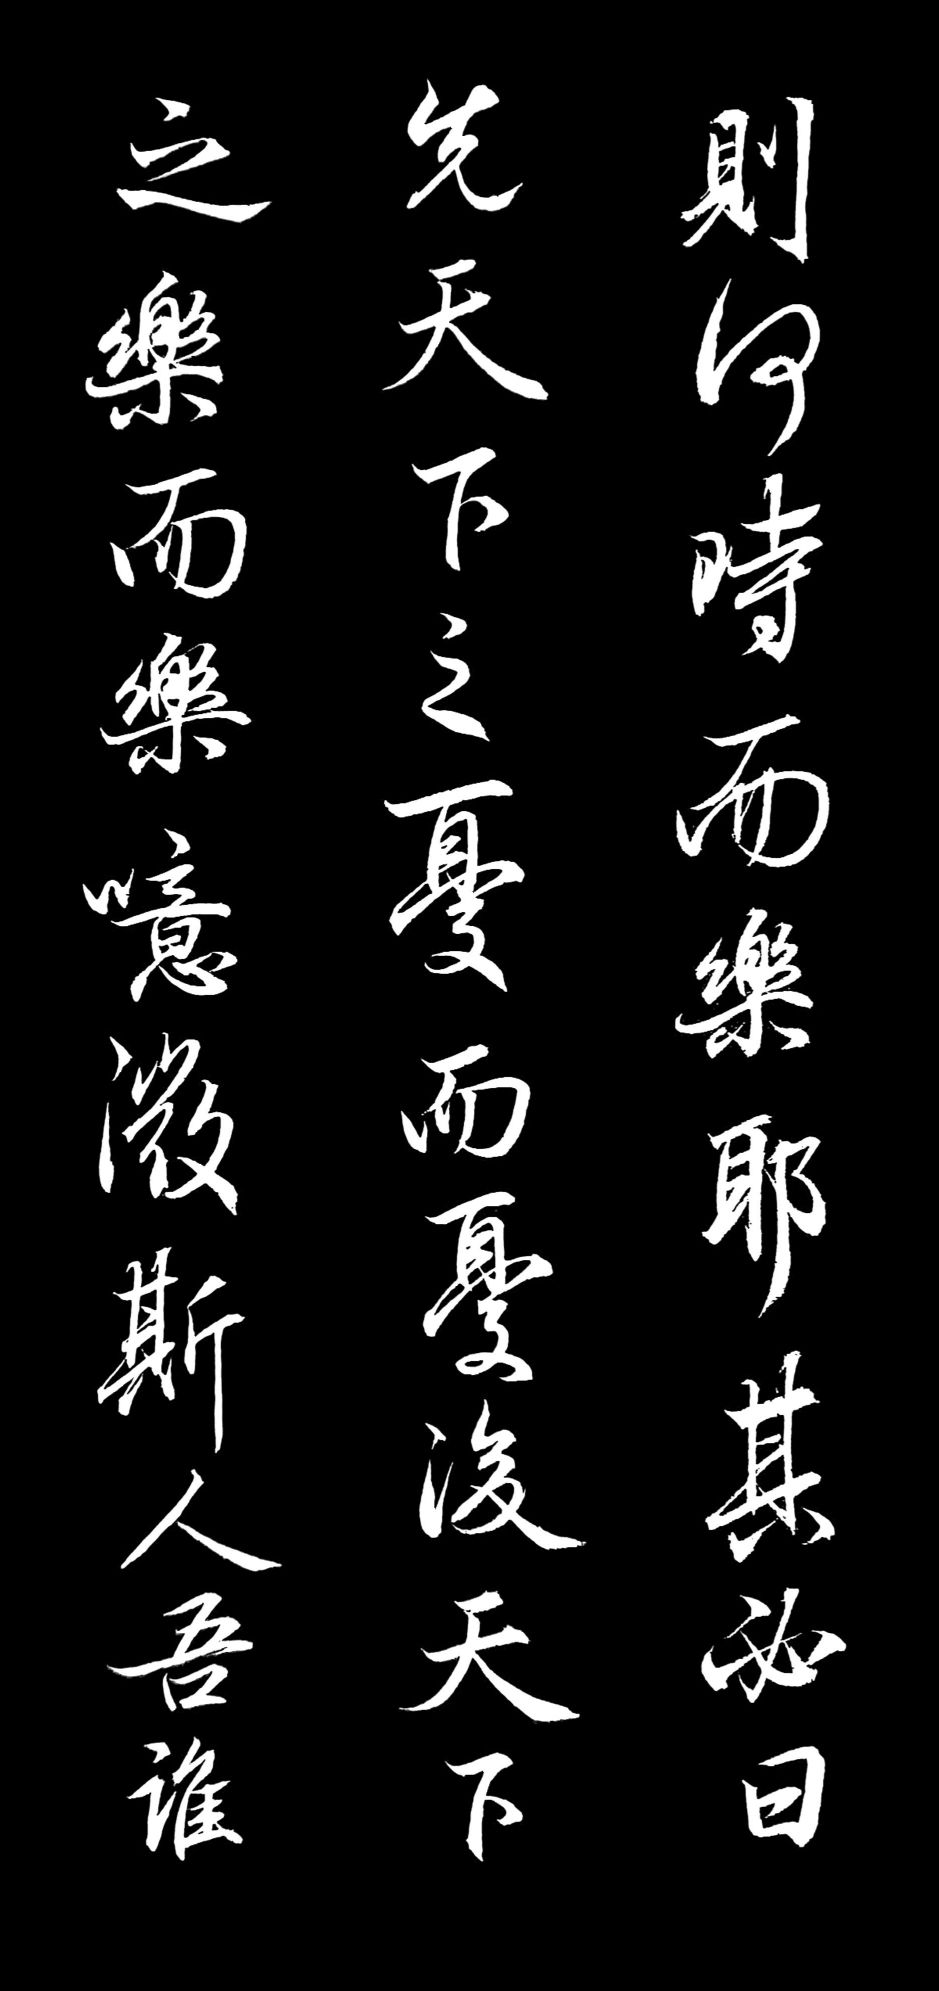 則何時而樂耶其必曰
先天下之憂而憂後天下
之樂而樂噫微斯人吾誰